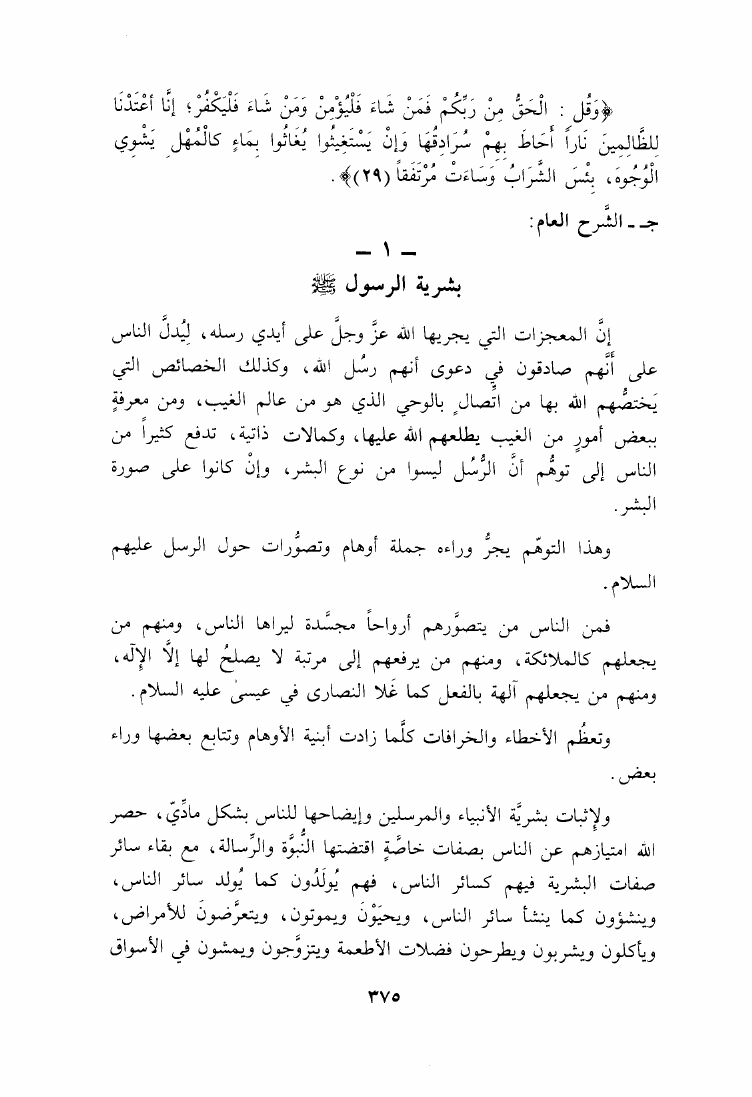 ﴿وَقُل : الْحَقُّ مِنْ رَبِّكُمْ فَمَنْ شَاءَ فَلْيُؤْمِنْ وَمَنْ شَاءَ فَلْيَكْفُرْ؛ إنَّا أعْتَدْنَا
لِلظَّالِمِينَ نَاراً أَحَاطَ بِهِمْ سُرَادِقُهَا وَإنْ يَسْتَغِيثُوا يُغَاثُوا بِمَاءٍ كالْمُهْلِ يَشْوِي
الْوُجُوهَ، بِئْسَ الشَّرَابُ وَسَاءَتْ مُرْتَفَقاً (٢٩)﴾.
جـ ـ الشَّرح العام:
ـ ١ ـ
بشرية الرسول ﷺ
إنَّ المعجزات التي يجريها الله عزَّ وجلَّ على أيدي رسله، لِيُدلَّ الناس
على أَنَّهم صادقون في دعوى أنهم رسُل الله، وكذلك الخصائص التي
يَختصُّهم الله بها من اتِّصالٍ بالوحي الذي هو من عالم الغيب، ومن معرفةٍ
ببعض أمورٍ من الغيب يطلعهم الله عليها، وكمالات ذاتية، تدفع كثيراً من
الناس إلى توهُّم أنَّ الرُّسُل ليسوا من نوع البشر، وإنْ كانوا على صورة
البشر.
وهذا التوهّم يجرُّ وراءه جملة أوهام وتصوُّرات حول الرسل عليهم
السلام.
فمن الناس من يتصوَّرهم أرواحاً مجسَّدة ليراها الناس، ومنهم من
يجعلهم كالملائكة، ومنهم من يرفعهم إلى مرتبة لا يصلحُ لها إلَّا الإلٰه،
ومنهم من يجعلهم آلهة بالفعل كما غَلا النصارى في عيسىٰ عليه السلام.
وتعظُم الأخطاء والخرافات كلَّما زادت أبنية الأوهام وتتابع بعضها وراء
بعض.
ولإثبات بشريَّة الأنبياء والمرسلين وإيضاحها للناس بشكل مادِّيّ، حصر
الله امتيازهم عن الناس بصفات خاصَّةٍ اقتضتها النُّبوَّة والرِّسالة، مع بقاء سائر
صفات البشرية فيهم كسائر الناس، فهم يُولَدُون كما يُولد سائر الناس،
وينشؤون كما ينشأ سائر الناس، ويحيَوْنَ ويموتون، ويتعرَّضونَ للأمراض،
ويأكلون ويشربون ويطرحون فضلات الأطعمة ويتزوَّجون ويمشون في الأسواق
٣٧٥